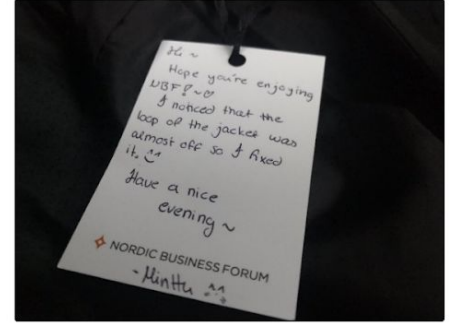 Hi ~
Hope you're enjoying
NBF!~♡
I noticed that the
loop of the jacket was
almost off so I fixed
it. ^^
Have a nice
evening ~
NORDIC BUSINESS FORUM
- Minttu ^^